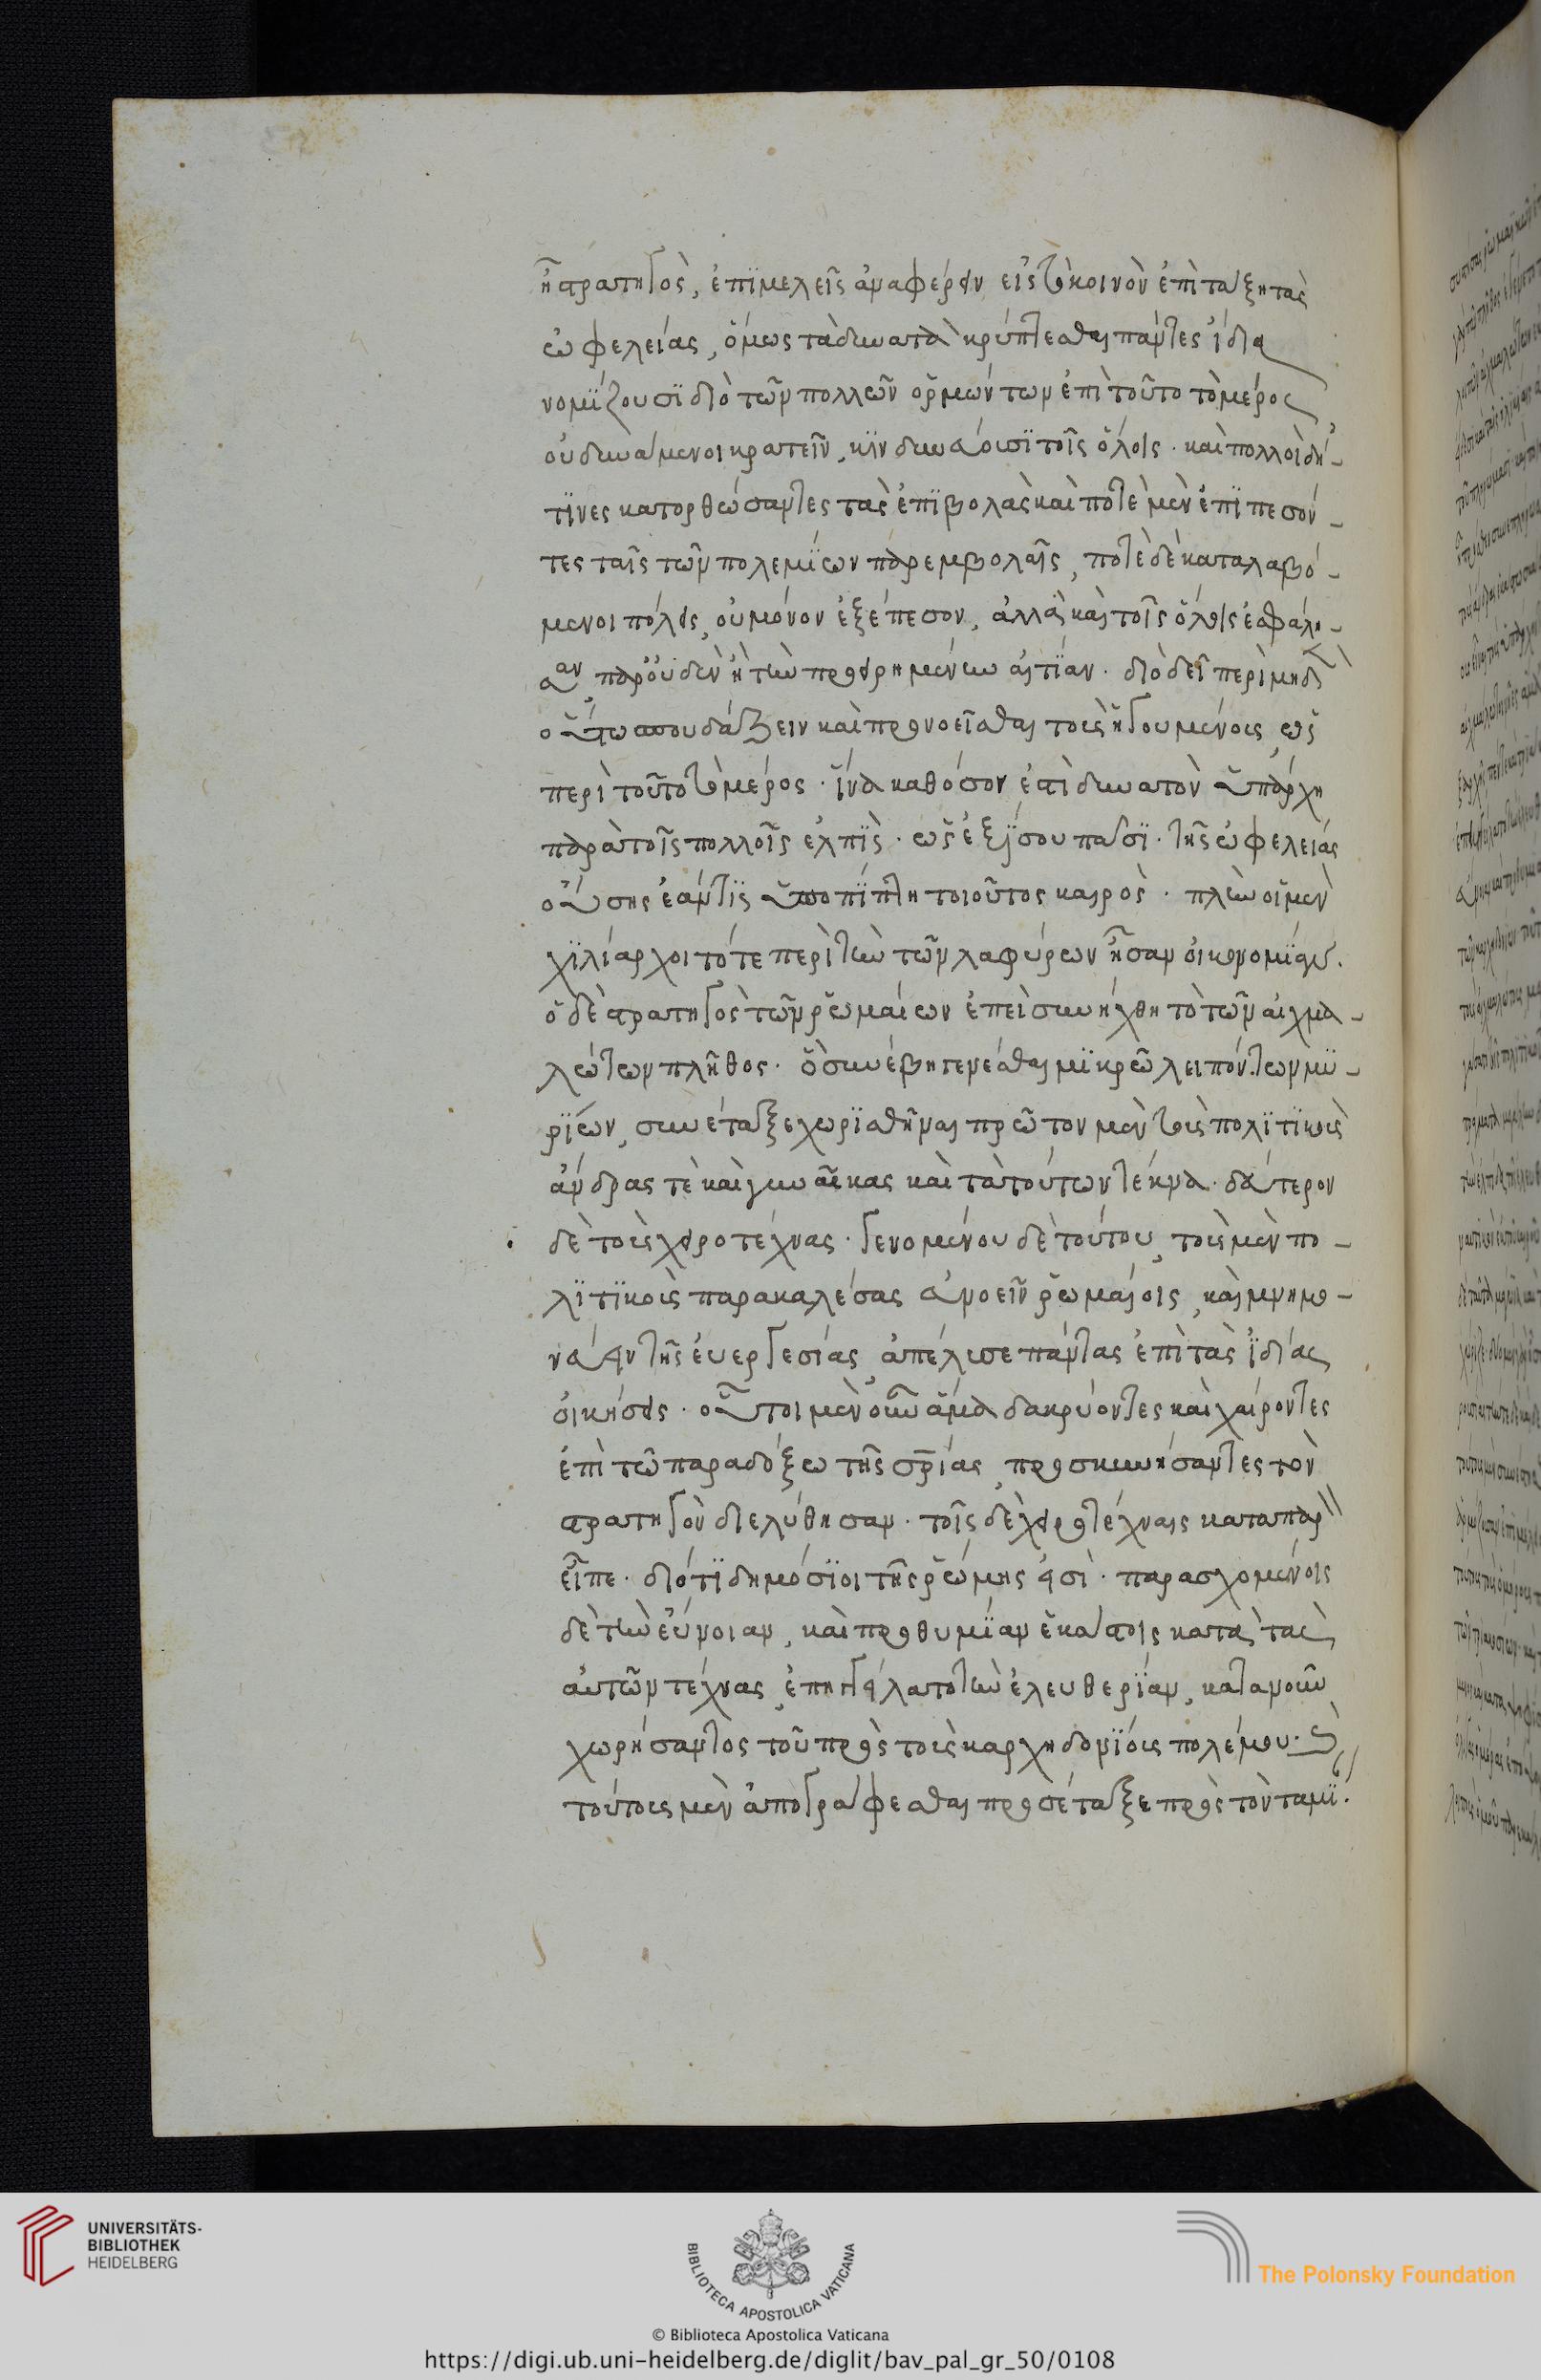 ἢ στρατηγὸς, ἐπϊμελεῖς ἀναφέρειν εἰς τὸ κοινὸν ἐπὶταξητὰς
ὠφελείας, ὅμως τὰ δυνατὰ κρύπτεσθαι πάντες ἴδια
νομΐζουσϊ διὸ τῶν πολλῶν ὁρμώντων ἐπὶ τοῦτο τὸ μέρος
οὐ δυνάμενοι κρατεῖν, κϊνδυνεύουσϊ τοῖς ὅλοις · καὶ πολλοὶ δή-
τϊνες κατορθώσαντες τὰς ἐπϊβολὰς καὶ ποτὲ μὲν ἐπϊπεσόν-
τες ταῖς τῶν πολεμΐων παρεμβολαῖς, ποτὲ δὲ καταλαβό-
μενοι πόλεις, οὐ μόνον ἐξέπεσον, ἀλλὰ καὶ τοῖς ὅλοις ἐσφάλη-
σαν παρ' οὐδὲν ἢ τὴν προειρημένην αἰτΐαν · διὸ δεῖ περὶ μηδὲν
οὕτω σπουδάζειν καὶ προνοεῖσθαι τοὺς ἡγουμένους, ὡς
περὶ τοῦτο τὸ μέρος · ἵνα καθόσον ἐστὶ δυνατὸν ὑπάρχη
παρὰ τοῖς πολλοῖς ἐλπῒς · ὡς ἐξ ΐσου πᾶσϊ · τῆς ὠφελείας
οὔσης ἐάν τϊς ὑποπΐπτη τοιοῦτος καιρὸς · πλὴν οἱ μὲν
χϊλίαρχοι τότε περὶ τὴν τῶν λαφύρων ἦσαν οἰκονομΐαν.
ὁ δὲ στρατηγὸς τῶν ῥωμαίων ἐπεὶ συνήχθη τὸ τῶν αἰχμα-
λώτων πλῆθος · ὃ συνέβη γενέσθαι μϊκρῶ λειπόντων μϋ-
ρΐων, συνέταξε χωρϊσθῆναι πρῶτον μὲν τοὺς πολϊτϊκοὺς
ἄνδρας τὲ καὶ γυναῖκας καὶ τὰ τούτων τέκνα · δεύτερον
δὲ τοὺς χειροτέχνας · γενομένου δὲ τούτου, τοὺς μὲν πο-
λϊτϊκοὺς παρακαλέσας εὐνοεῖν ῥωμαίοις, καὶ μνημο-
νεύειν τῆς ἐυεργεσίας, ἀπέλυσε πάντας ἐπὶ τὰς ἰδίας
οἰκήσεις · οὗτοι μὲν οὖν ἅμα δακρύοντες καὶ χαίροντες
ἐπὶ τῶ παραδόξω τῆς σρίας, προσκυνήσαντες τὸν
στρατηγὸν διελύθησαν · τοῖς δὲ χειροτέχναις καταπαρ
εἶπε · διότϊ δημόσϊοι τῆς ῥώμης εἰσὶ · παρασχομένοις
δὲ τὴν εὔνοιαν, καὶ προθυμΐαν ἑκάστοις κατὰ τὰς
αὐτῶν τέχνας, ἐπηγγείλατο τὴν ἐλευθερΐαν, κατανοῦν
χωρήσαντος τοῦ πρὸς τοὺς καρχηδονΐους πολέμου · καὶ
τούτους μὲν ἀπογράφεσθαι προσέταξε πρὸς τὸν ταμΐ.
UNIVERSITÄTS-
BIBLIOTHEK
HEIDELBERG
BIBLIOTECA APOSTOLICA VATICANA
The Polonsky Foundation
© Biblioteca Apostolica Vaticana
https://digi.ub.uni-heidelberg.de/diglit/bav_pal_gr_50/0108